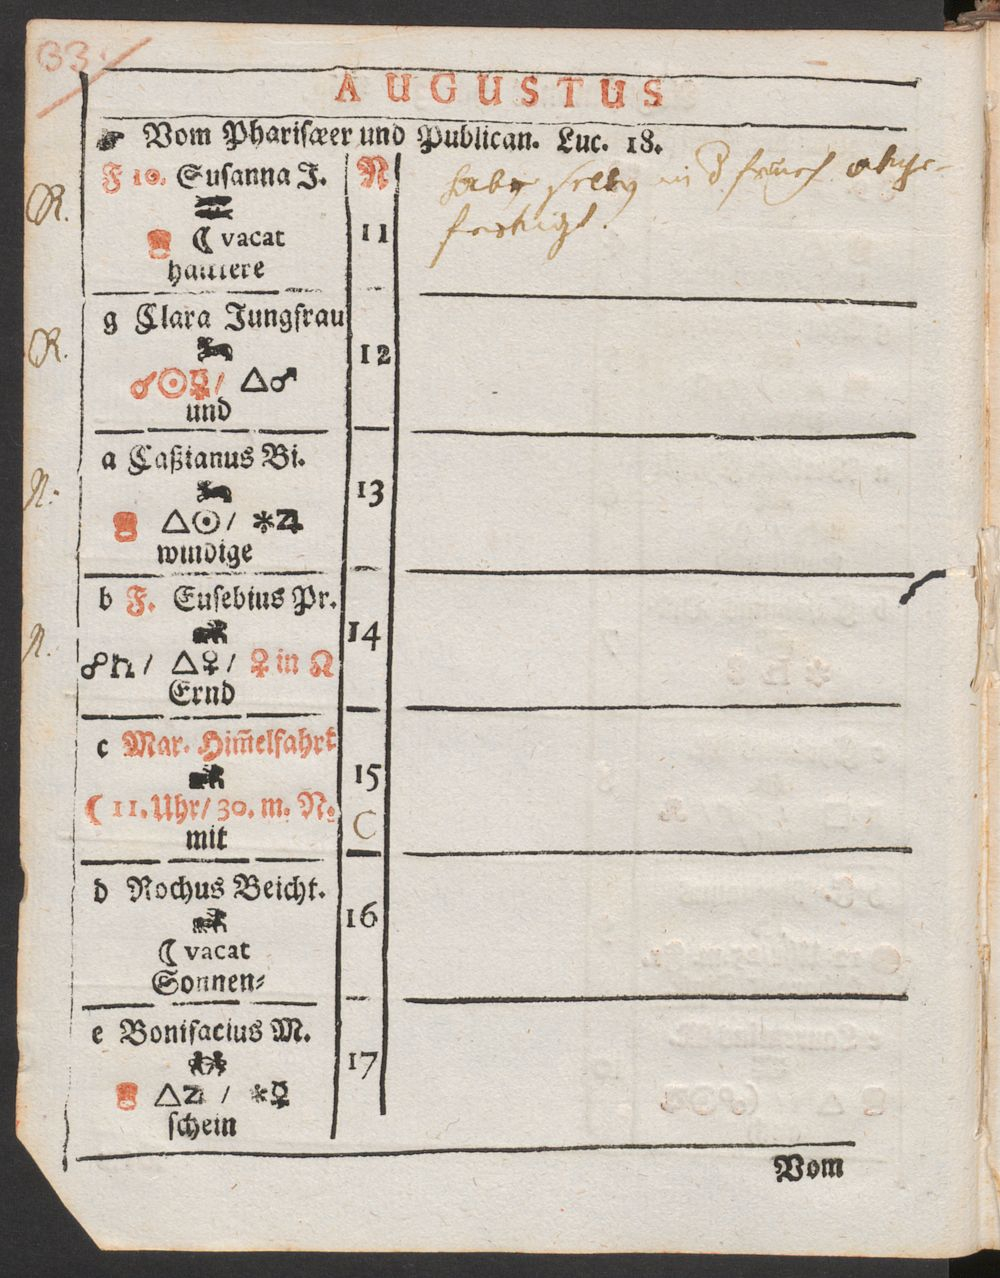 33.
AUGUSTUS
☛ Vom Phariſæer und Publican. Luc. 18.
F 10. Suſanna J. N
R.
☾ vacat 11
haittere
g Clara Jungfrau
R. 12
☌☉☿/ △♂
und
a Caßianus Bi.
N. 13
△☉/ ✱♃
windige
b F. Euſebius Pr.
N. 14
☍♄/ △♀/ ♀ in ☊
Ernd
c Mar. Him̃elfahrt
15
☾ 11. Uhr/ 30. m. N. C
mit
d Rochus Beicht.
16
☾ vacat
Sonnen⸗
e Bonifacius M.
17
△♃ / ✱☿
ſchein
Vom